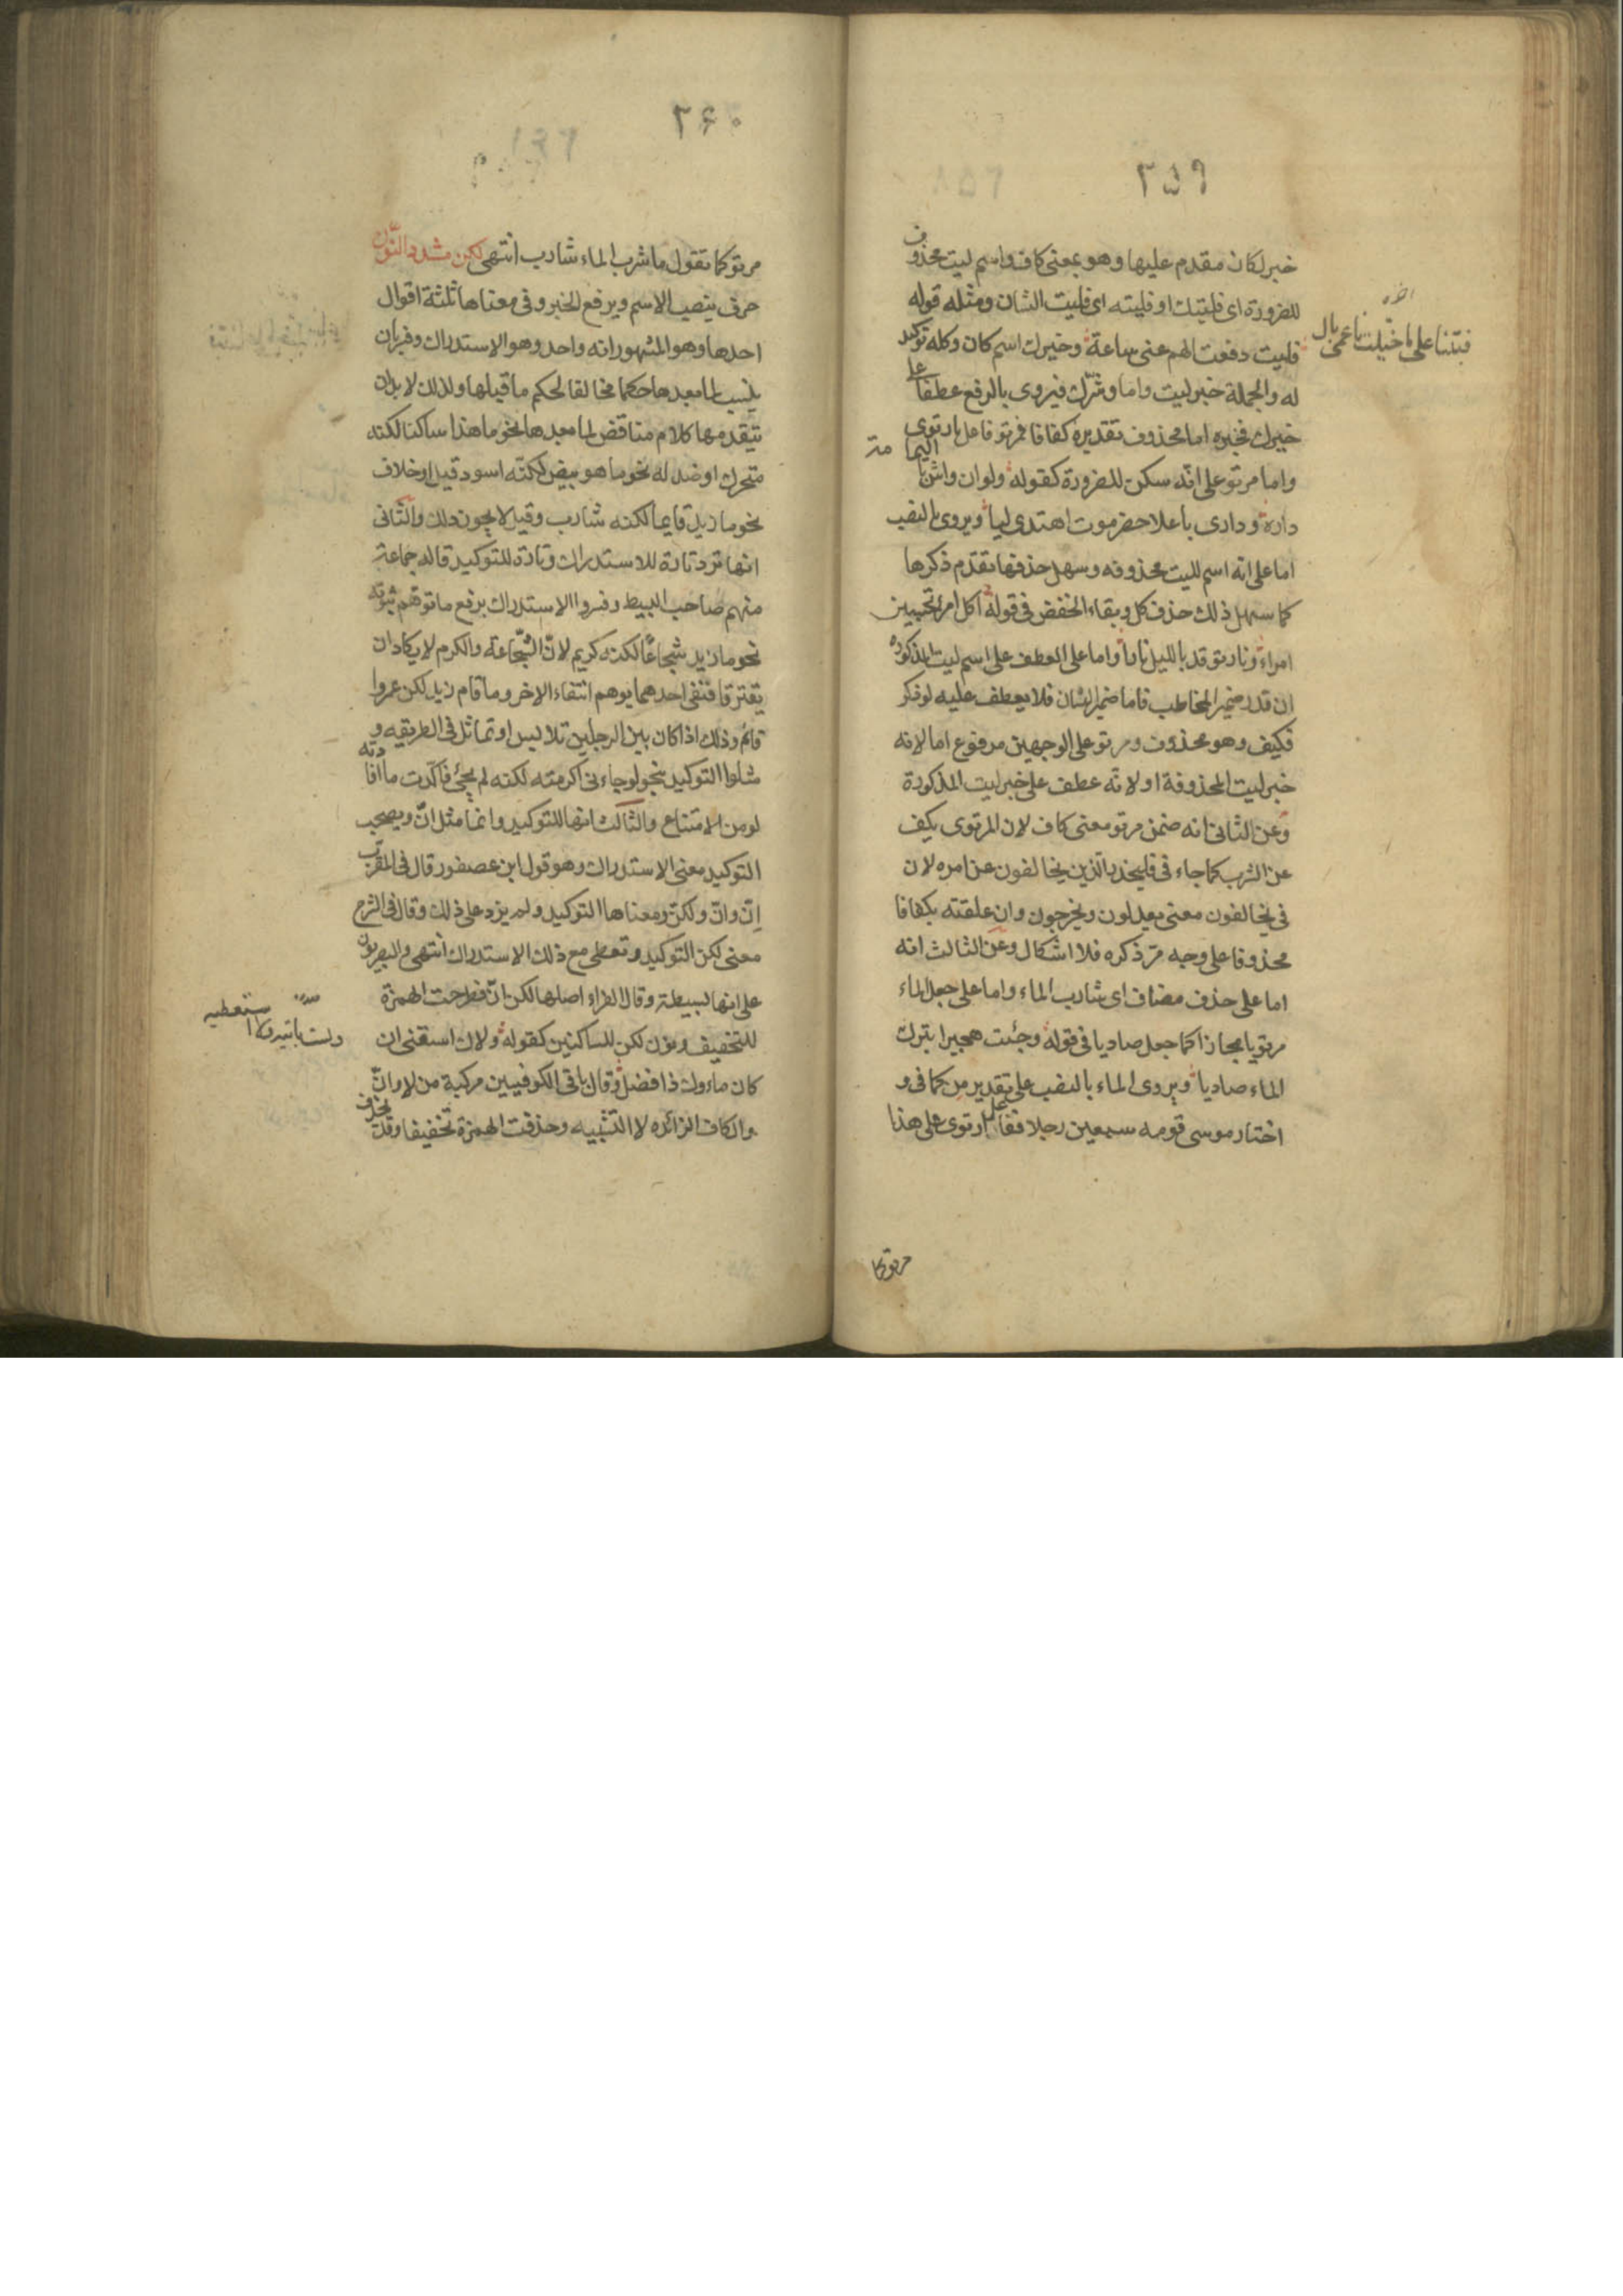 ٢٥٩
خبر لكان مقدم عليها وهو بمعنى كاف واسم ليت محذوف
للضرورة اى فليتك او فليته اى فليت الشان ومثله قوله
فليت دفعت الهم عنى ساعة وخيرك اسم كان وكله توكيد
له والجملة خبر ليت واما وشرك فيروى بالرفع عطفا على
خيرك فخبره اما محذوف تقديره كفافا فمرتو فاعل بارتوى
واما مرتو على انه سكن للضرورة كقوله ولو ان واش باليمامة
داره ودارى باعلا حضرموت اهتدى ليا ويروى بالنصب
اما على انه اسم لليت محذوفه وسهل حذفها تقدم ذكرها
كما سهل ذلك حذف كل وبقاء الخفض فى قوله اكل امرئ تحسبين
امراء ونار توقد بالليل نارا واما على العطف على اسم ليت المذكوره
ان قدر ضمير المخاطب فاما ضمير الشان فلا يعطف عليه لو ذكر
فكيف وهو محذوف ومرتو على الوجهين مرفوع اما لانه
خبر ليت المحذوفة او لانه عطف على خبر ليت المذكورة
وعن الثانى انه ضمن مرتو معنى كاف لان المرتوى يكف
عن الشرب كما جاء فى فليحذر الذين يخالفون عن امره لان
فى يخالفون معنى يعدلون ويخرجون وان علقته بكفافا
محذوفا على وجه مر ذكره فلا اشكال وعن الثالث انه
اما على حذف مضاف اى شارب الماء واما على جعل الماء
مرتويا مجازا كما جعل صاديا فى قوله وجئت هجيرا يترك
الماء صاديا ويروى الماء بالنصب على تقدير من كما فى و
اختار موسى قومه سبعين رجلا ففاعل ارتوى على هذا
مرتو كما
فبتنا على ما خيلت ناعمى بال
٢٦٠
مرتو كما تقول ما شرب الماء شارب انتهى لكن مشدد النون
حرف ينصب الاسم ويرفع الخبر وفى معناها ثلثة اقوال
احدها وهو المشهور انه واحد وهو الاستدراك وفسر بان
ينسب لما بعدها حكما مخالفا لحكم ما قبلها ولذلك لا بد ان
يتقدمها كلام مناقض لما بعدها نحو ما هذا ساكنا لكنه
متحرك او ضد له نحو ما هو ابيض لكنه اسود قيل او خلاف
نحو ما زيد قايما لكنه شارب وقيل لا يجوز ذلك والثانى
انها ترد تارة للاستدراك وتارة للتوكيد قاله جماعة
منهم صاحب البسيط وفسروا الاستدراك برفع ما توهم ثبوته
نحو ما زيد شجاعا لكنه كريم لان الشجاعة والكرم لا يكادان
يفترقا فنفى احدهما يوهم انتفاء الاخر وما قام زيد لكن عمروا
قائم وذلك اذا كان بين الرجلين تلابس او تماثل فى الطريقه و
مثلوا التوكيد بنحو لو جاءنى اكرمته لكنه لم يجئ فاكدت ما افادته
لو من الامتناع والثالث انها للتوكيد دائما مثل ان ويصحب
التوكيد معنى الاستدراك وهو قول ابن عصفور قال فى المقرب
ان وان ولكن ومعناها التوكيد ولم يزد على ذلك وقال فى الشرح
معنى لكن التوكيد وتعطى مع ذلك الاستدراك انتهى والبصريون
على انها بسيطة وقال الفراء اصلها لكن ان فطرحت الهمزة
للتخفيف ونون لكن للساكنين كقوله ولاك اسقنى ان
كان ماءوك ذا فضل وقال باقى الكوفيين مركبة من لا وان
والكاف الزائده لا التشبيه وحذفت الهمزة تخفيفا وقد يحذف
ولست باتيه ولا استطيعه